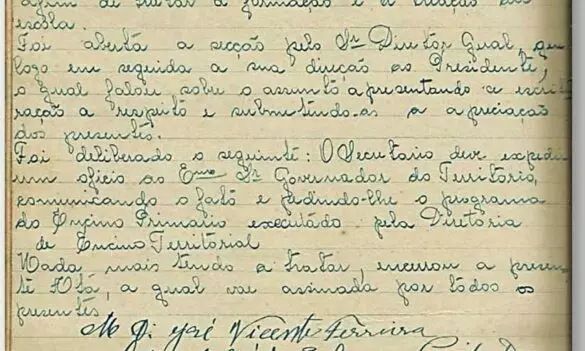 afim de tratar a formação e a creação da
escola.
Foi aberta a secção pelo Sr Diretor Geral, que
logo em seguida a sua direção ao Presidente,
o qual falou sobre o assunto apresentando a escritu
ração a respeito e submetendo-as a apreciação
dos presentes.
Foi deliberado o seguinte: O Secretario deve expedir
um oficio ao Emo Sr Governador do Territorio,
comunicando o fato e pedindo-lhe o programa
do Encino Primario executado pela Diretoria
de Encino Territorial
Nada mais tendo a tratar, encerrou a presen-
te Ata, a qual vae assinada por todos os
presentes.
José Vicente Ferreira